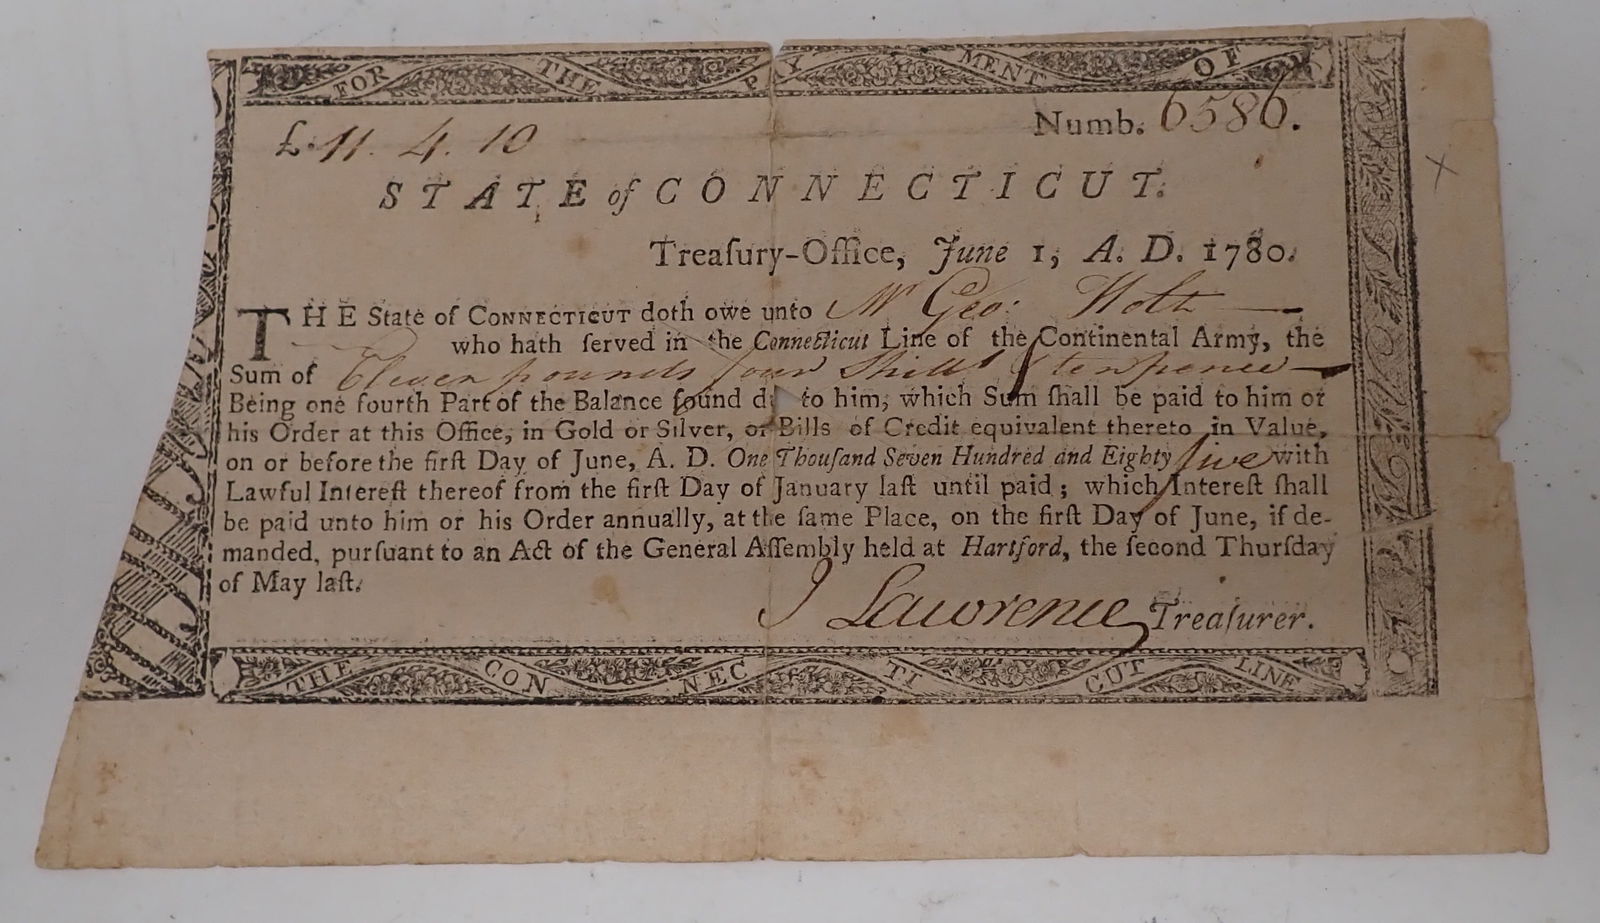 FOR THE PAYMENT OF
£. 11. 4. 10
Numb. 6586.
STATE of CONNECTICUT.
Treaſury-Office, June 1, A. D. 1780.
THE State of CONNECTICUT doth owe unto Mr Geo: Holt
who hath ſerved in the Connecticut Line of the Continental Army, the
Sum of Eleven pounds four Shills & tenpence
Being one fourth Part of the Balance found d to him, which Sum ſhall be paid to him or
his Order at this Office, in Gold or Silver, or Bills of Credit equivalent thereto in Value,
on or before the firſt Day of June, A. D. One Thouſand Seven Hundred and Eighty five with
Lawful Intereſt thereof from the firſt Day of January laſt until paid; which Intereſt ſhall
be paid unto him or his Order annually, at the ſame Place, on the firſt Day of June, if de-
manded, purſuant to an Act of the General Aſſembly held at Hartford, the ſecond Thurſday
of May laſt.
J Lawrence Treaſurer.
THE CONNECTICUT LINE